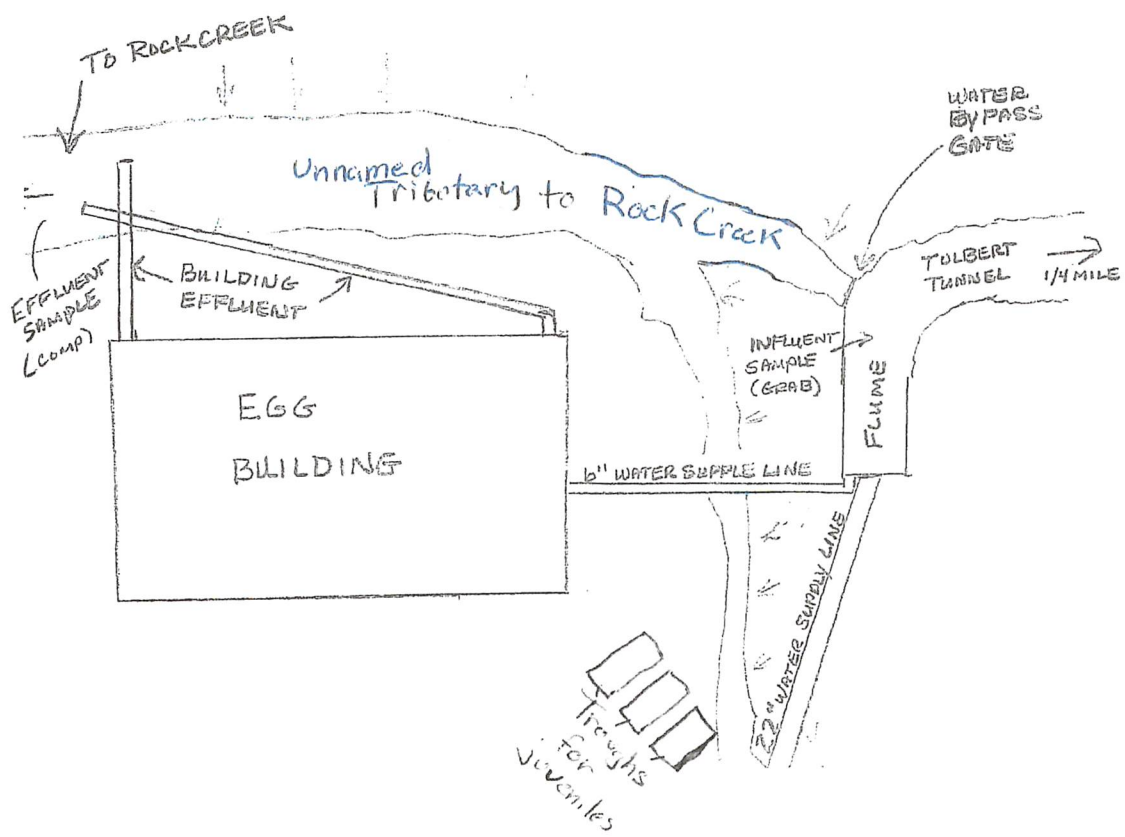 TO ROCKCREEK
WATER
BYPASS
GATE
Unnamed
Tributary to Rock Creek
TOLBERT
TUNNEL
1/4 MILE
EFFLUENT
SAMPLE
(COMP)
BUILDING
EFFLUENT
INFLUENT
SAMPLE
(GRAB)
FLUME
EGG
BUILDING
6" WATER SUPPLE LINE
22" WATER SUPPLY LINE
Troughs
for
Juveniles